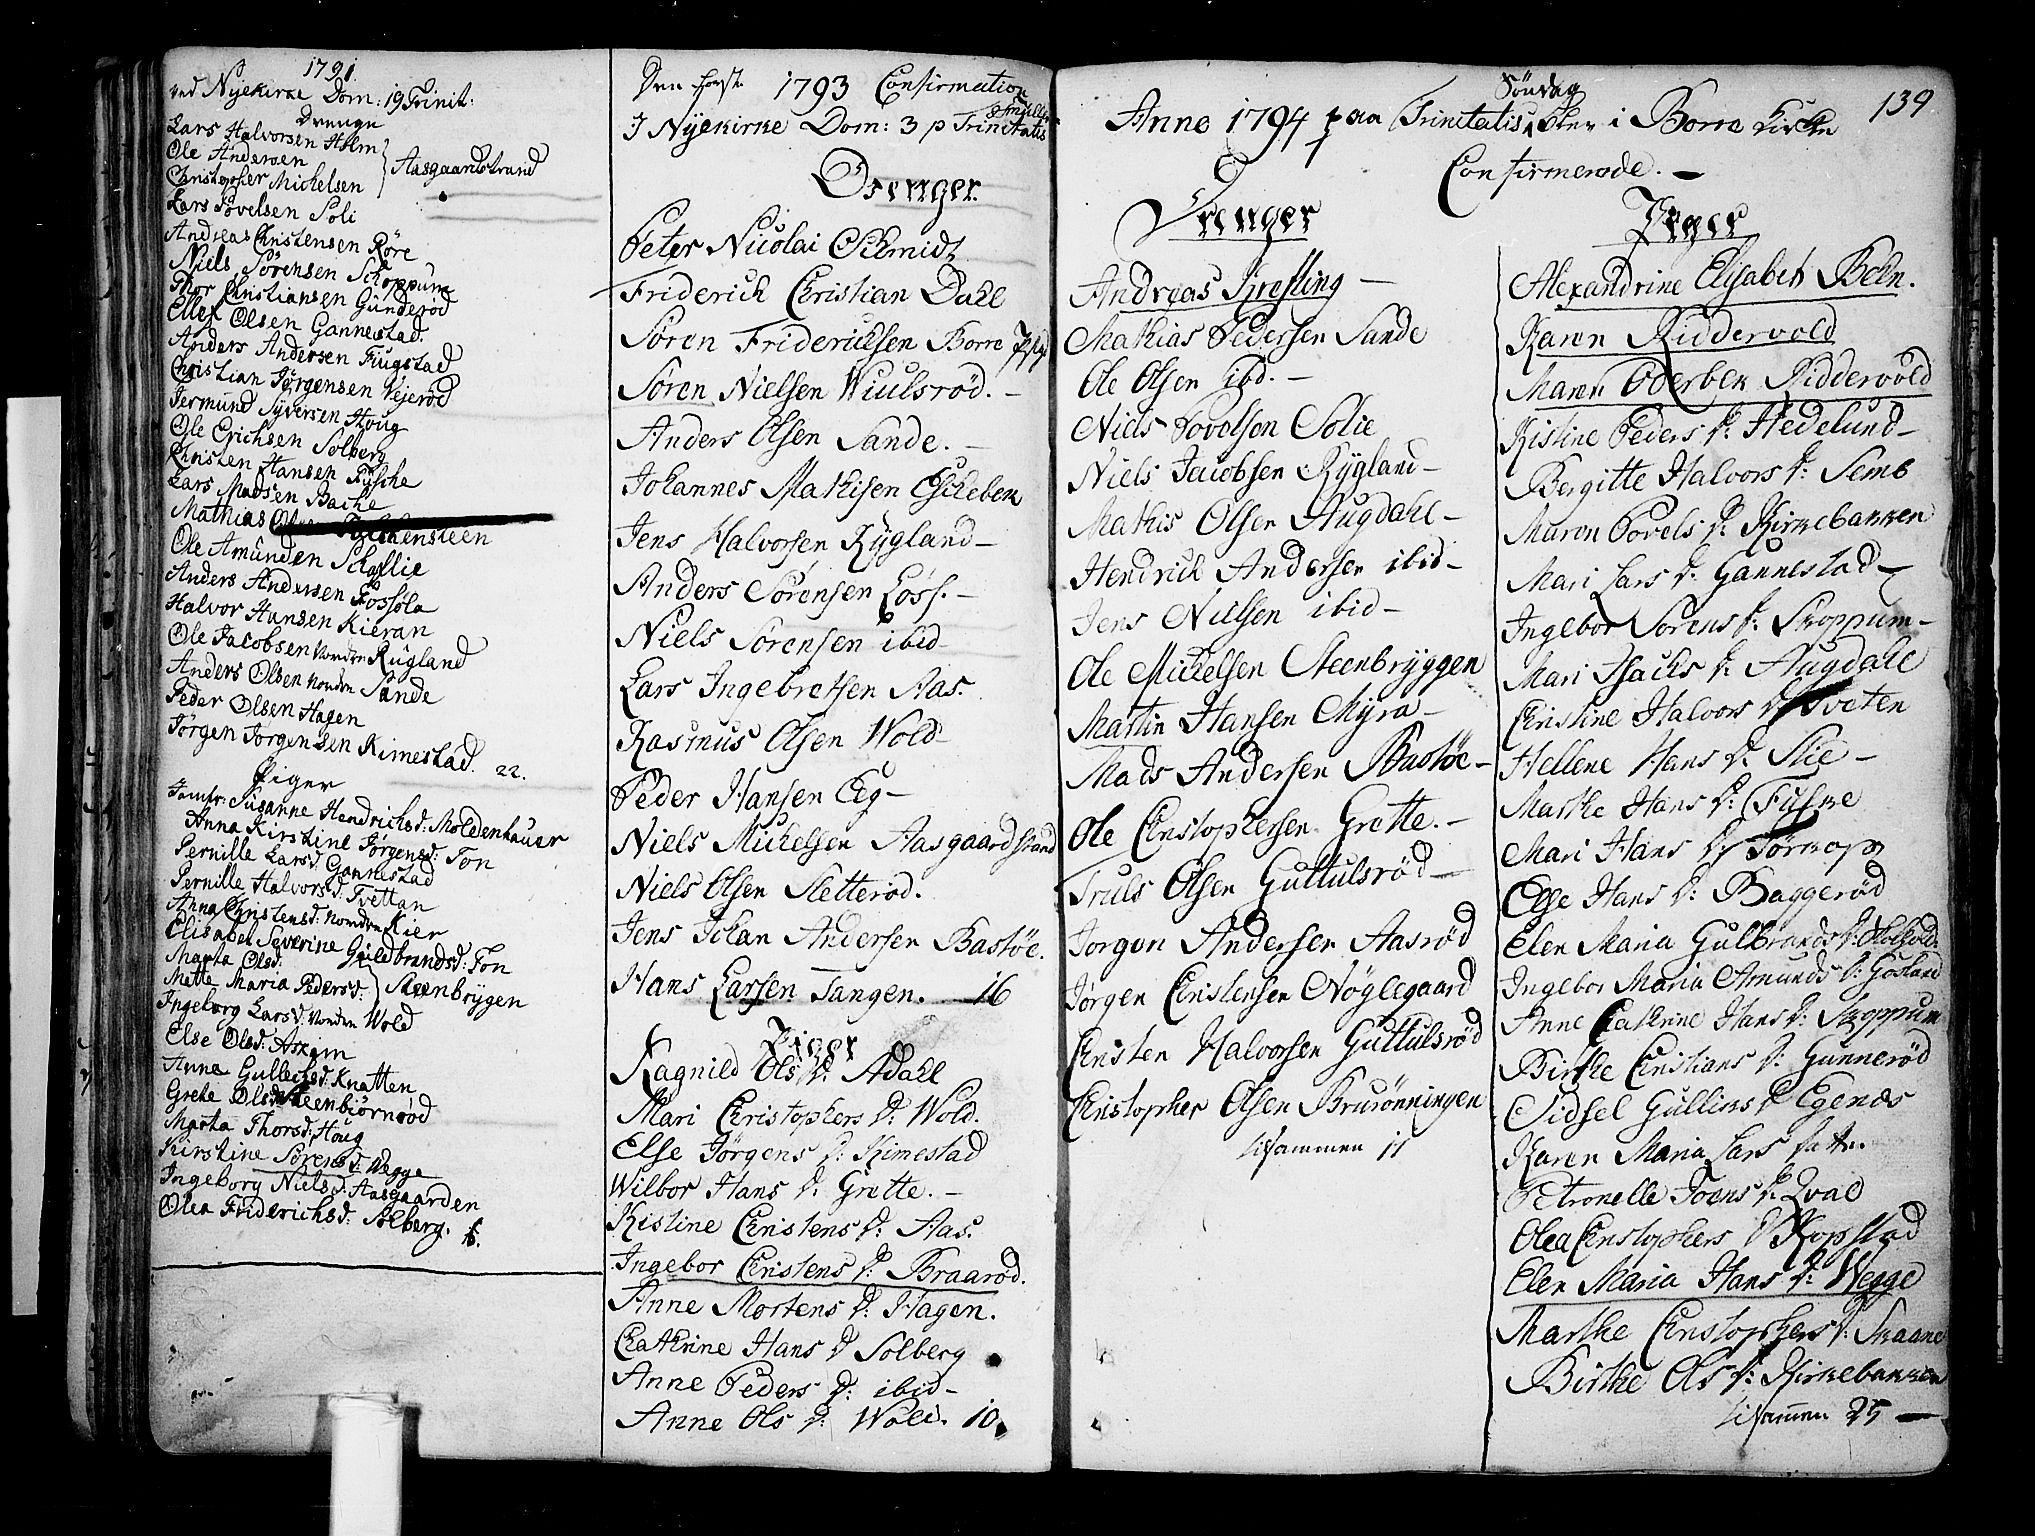 1791.
ved Nyekirke Dom: 19 Trinit:
Drenge
Lars Halvorsen Holm
Ole Andersen
Christopher Michelsen
Aasgaardstrand
Lars Povelsen Soli
Andreas Christensen Röre
Niels Sörensen Schoppum
Thor Christiansen Gunderöd
Ellef Olsen Gannestad.
Anders Andersen Fiugstad
Christian Jörgensen Vejeröd
Jermund Syversen Houg
Ole Erichsen Solberg
Christen Hansen Fysche
Lars Madsen Bache
Mathias
Ole Amunden Schallie
Anders Andersen Fossöla
Halvor Hansen Kieran
Ole Jacobsen Nordre Rugland
Anders Olsen Nordre Sande
Peder Olsen Hagen
Jörgen Jorgensen Kimestad. 22.
Piger
Jomfr: Susanne Hendrichsd: Moldenhauer
Anna Kirstine Jörgensd: Fon
Pernille Larsd: Gannestad
Pernille Halvorsd: Tvettan
Anna Christensd: Nordre Kier
Elisabet Severine Guldbrandsd: Fon
Marta Olsd:
Mette Maria Pedersd:
Steenbrygen
Ingeborg Larsd: Nordre Wold
Else Olsd: Askim
Anne Gullechsd: Knatten
Grete Olsd: Steenbiörnröd
Marta Thorsd: Houg
Kirstine Sörensd: Wegge
Ingeborg Nielsd: Aasgaarden
Olea Friderichsd: Solberg. 16.
Den förste 1793 Confirmation
I Nyekirke Dom: 3 p Trinitatis
Drenger.
Peter Nicolai Schmidt
Friderich Christian Dahl
Sören Fridericksen Borre
Sören Nielsen Wiulsröd. -
Anders Olsen Sande. -
Johannes Mathisen Eschebek
Jens Halvorsen Rygland -
Anders Sörensen Löff. -
Niels Sörensen ibid -
Lars Ingebretsen Aas.
Rasmus Olsen Wold -
Peder Hansen Eeg -
Niels Mickelsen Aasgaardstrand
Niels Olsen Sletteröd.
Jens Johan Andersen Bastöe.
Hans Larsen Tangen. 16
Piger
Ragnild Ols D: Adahl
Mari Christophers D: Wold.
Else Jörgens D: Kimestad
Wilbor Hans D: Grette. -
Kistine Christens D: Aas.
Ingebor Christens D: Braaröd.
Anne Mortens D: Hagen.
Chathrine Hans D Solberg
Anne Peders D: ibid -
Anne Ols D: Wold. 10.
139
Söndag
Anne 1794 paa Trinitatis i Borre Kirke
Confirmerede. -
Drenger
Andreas Kresting -
Mathias Pedersen Sande
Ole Olsen ibd. -
Niels Povelsen Solie
Niels Jacobsen Rygland -
Mathis Olsen Augdahl -
Hendrick Andersen ibid -
Jens Nielsen ibid -
Ole Mickelsen Steenbryggen
Martin Hansen Myra -
Mads Andersen Bastöe -
Ole Christophersen Grette. -
Truls Olsen Guttulsröd -
Jörgen Andersen Aasröd
Jörgen Christensen Nöglegaard
Christen Halvorsen Guttulsröd
Christopher Olsen Brurönningen
tilsammen 17
Piger
Alexandrine Elisabeth Bohn.
Karen Riddervold
Maren Oderbek Riddervold
Kistine Peders D: Hedelund -
Bergitte Halvors D: Semb
Maren Povels D: Kirkebakken
Mari Lars D: Gannestad -
Ingebor Sorens D: Skoppum -
Mari Isachs D: Augdahl
Christine Halvors D Tveten
Hellene Hans D. Slie -
Marthe Hans D: Fuske
Mari Hans D Tornop
Else Hans D: Baggeröd
Elen Maria Gulbrands D:
Ingebor Maria Amunds D:
Anne Cathrine Hans D: Skoppum
Birthe Christians D: Gunneröd
Sidsel Gulliks D Egenæs
Karen Maria Lars
Petronelle Joens D: Qval
Olea Christophers D Kopstad
Elen Maria Hans D: Wegge
Marthe Christophers D: Skaane
Birthe Ols D: Kirkebakken
tilsammen 25 -